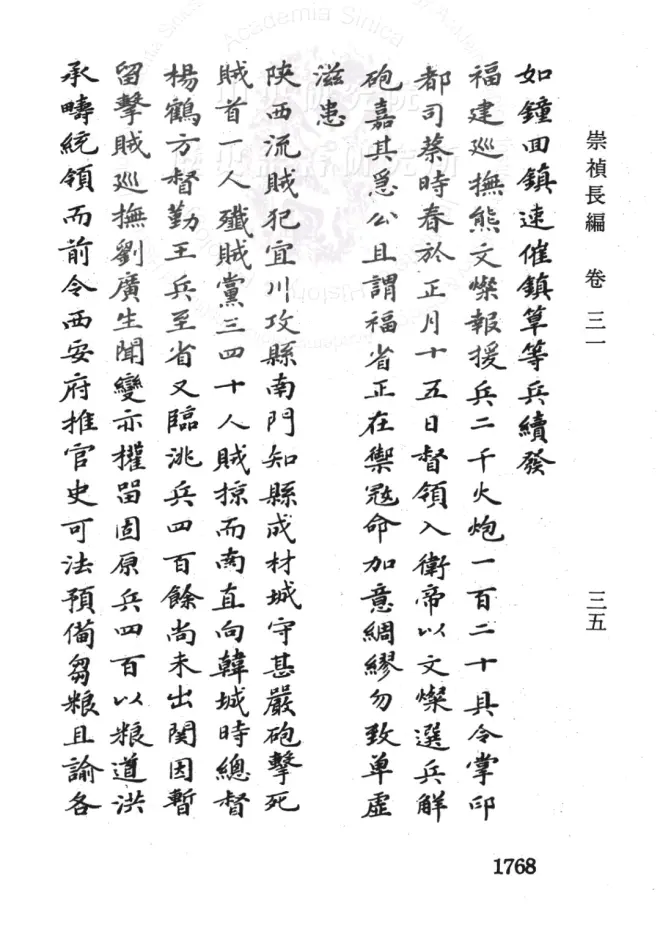 崇禎長編 卷三一 三五
如鐘回鎮速催鎮筸等兵續發
福建巡撫熊文燦報援兵二千火炮一百二十具令掌印
都司蔡時春於正月十五日督領入衛帝以文燦選兵解
砲嘉其急公且謂福省正在禦寇命加意綢繆勿致單虛
滋患
陝西流賊犯宜川攻縣南門知縣成材城守甚嚴砲擊死
賊首一人殲賊黨三四十人賊掠而南直向韓城時總督
楊鶴方督勤王兵至省又臨洮兵四百餘尚未出関因暫
留擊賊巡撫劉廣生聞變亦擢留固原兵四百以粮道洪
承疇統領而前令西安府推官史可法預備芻粮且諭各
1768
Academia Sinica